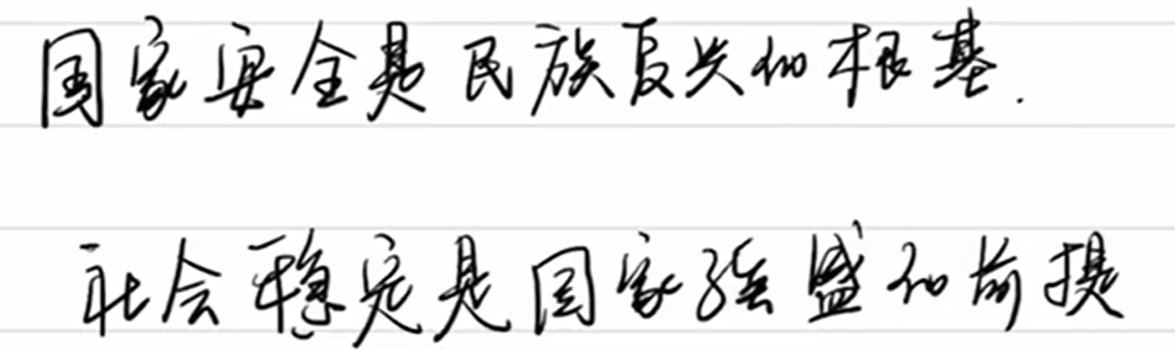 国家安全是民族复兴的根基.
社会稳定是国家强盛的前提